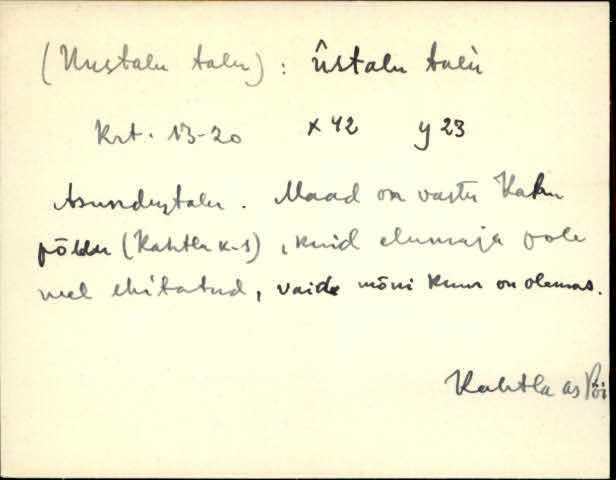 (Uustalu talu) : ûstalu talù
Krt. 13-20 x 42 y 23
Asundustalu. Maad on vastu Kahu
põldu (Kahtla k-s), kuid elumaja pole
veel ehitatud, vaid mõni kuur on olemas.
Kahtla as Pöi